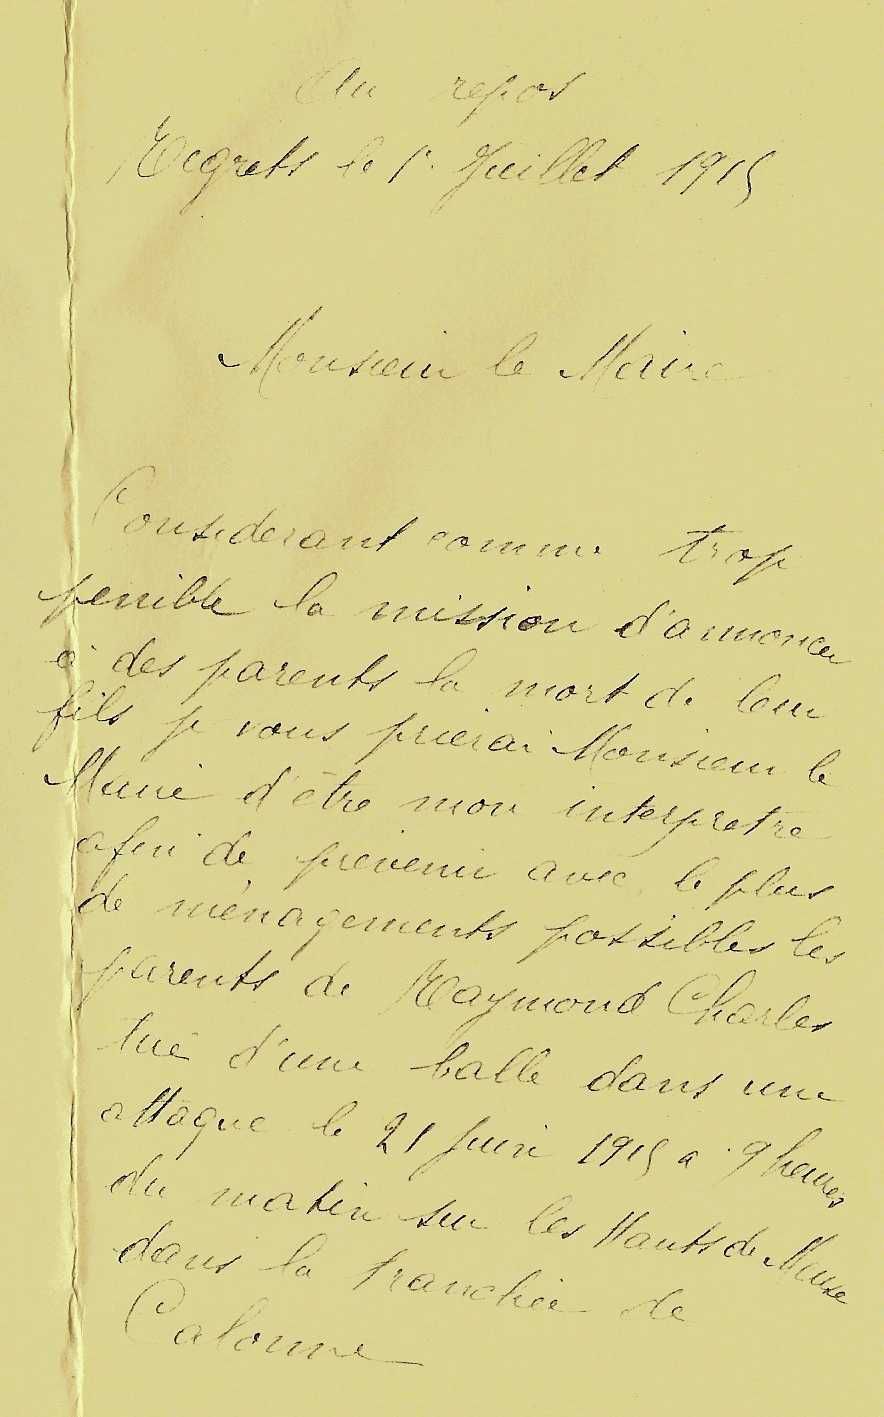 Au repos
Regrets le 1r Juillet 1915
Monsieur le Maire
Considerant comme trop
penible la mission d'annoncer
à des parents la mort de leur
fils je vous prierai Monsieur le
Maire d'être mon interpretre
afin de prevenir avec le plus
de ménagements possibles les
parents de Raymond Charles
tué d'une balle dans une
attaque le 21 Juin 1915 a 9 heures
du matin sur les Hauts de Meuse
dans la tranchée de
Calonne